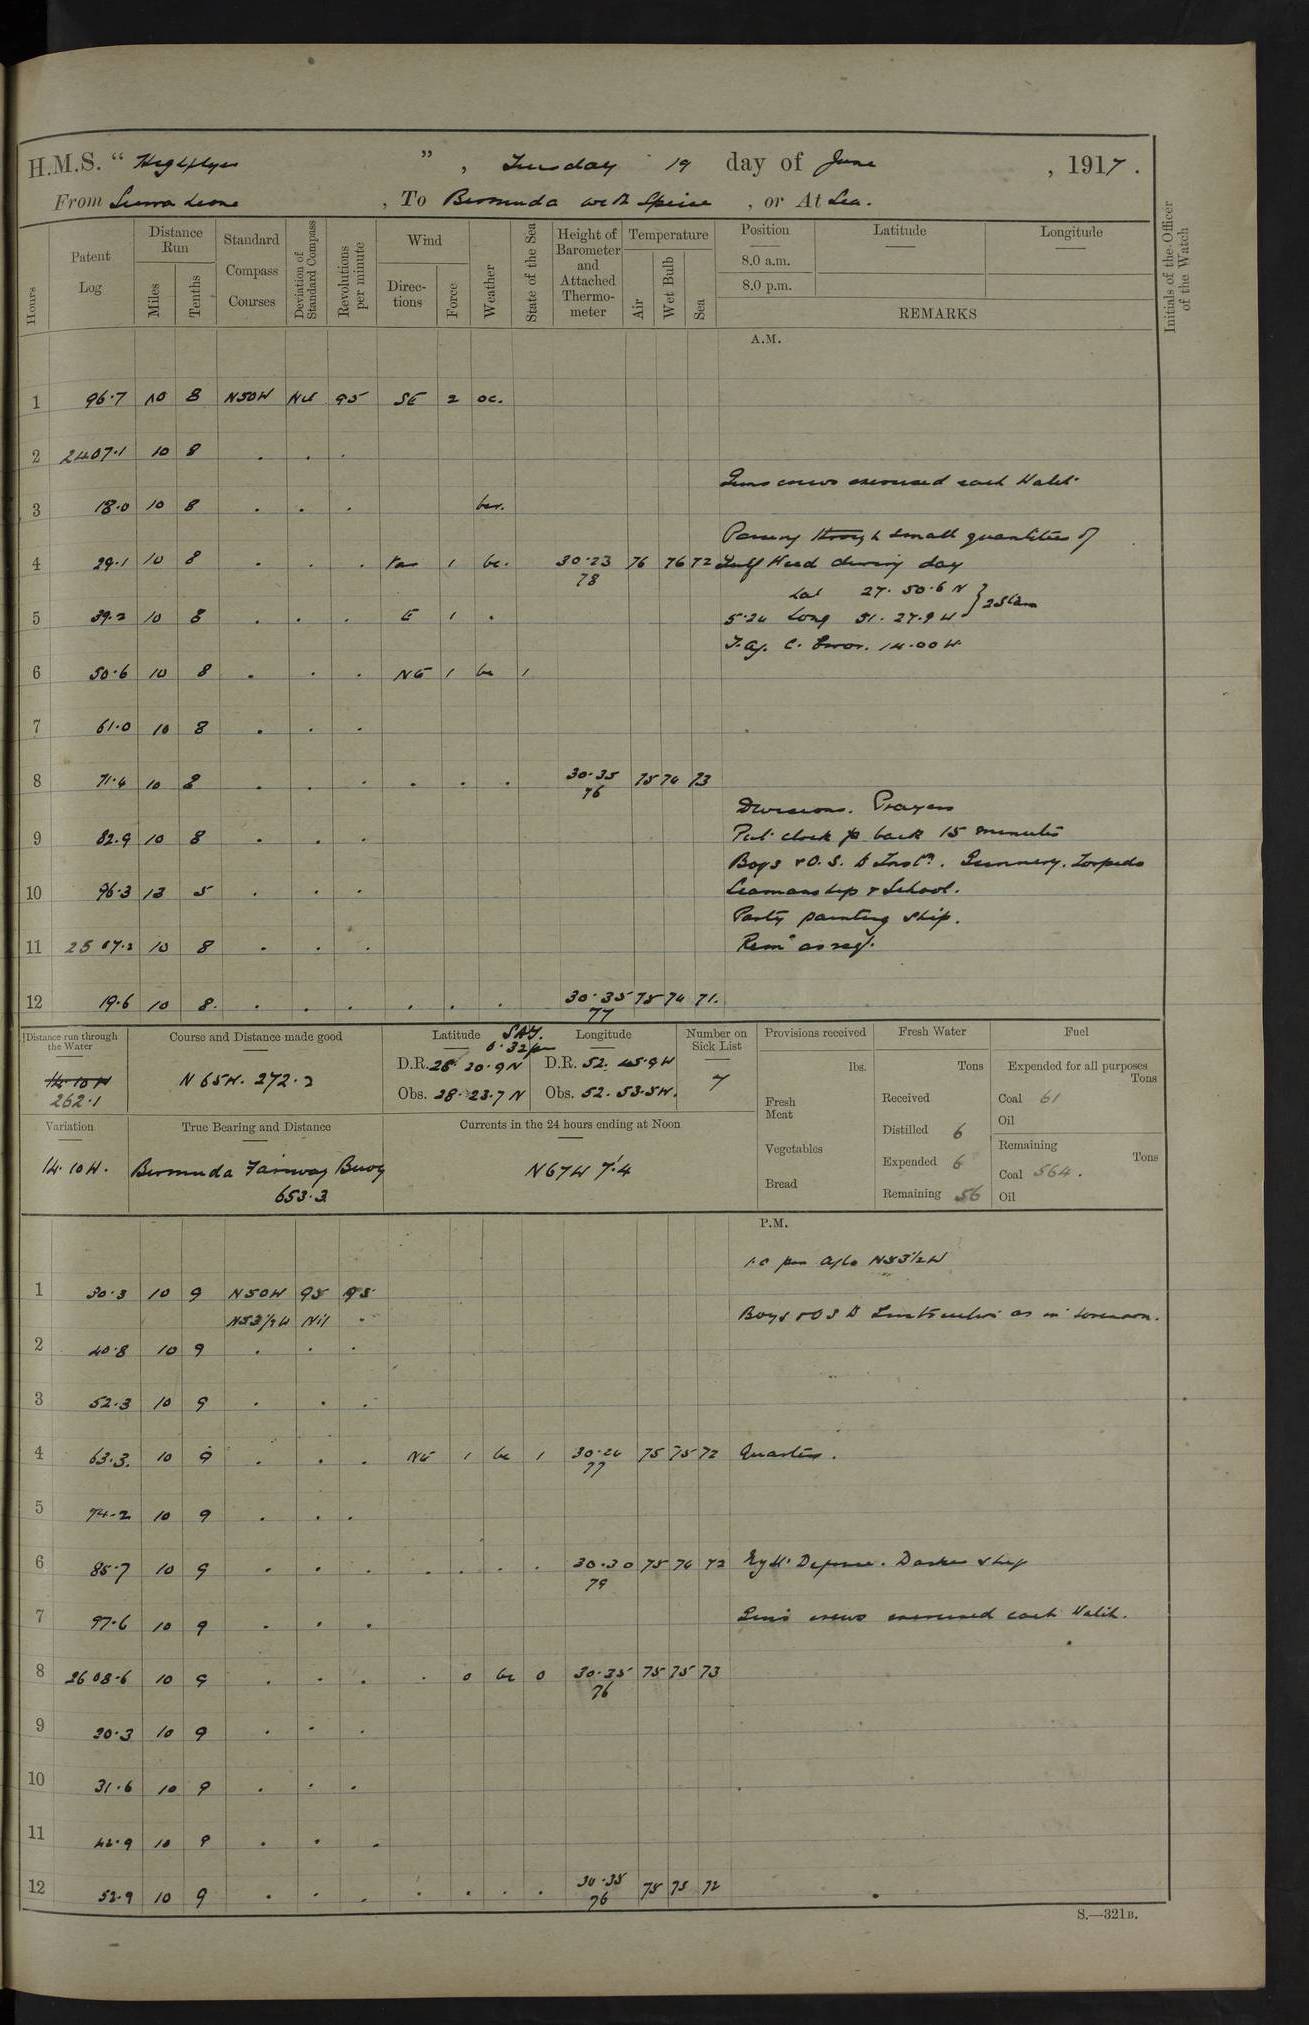 H.M.S. "Highflyer", Tuesday 19 day of June, 1917.
From Sierra Leone, To Bermuda with Speise, or At Sea.
Hours Patent Log Distance Run Miles Tenths Standard Compass Courses Deviation of Standard Compass Revolutions per minute Wind Directions Force Weather State of the Sea Height of Barometer and Attached Thermometer Temperature Air Wet Bulb Sea Position Latitude Longitude Initials of the Officer of the Watch
8.0 a.m.
8.0 p.m.
REMARKS
A.M.
1 96.7 10 8 N50W Nil 95 SE 2 oc.
2 2407.1 10 8 . . .
Guns crews exercised each Watch
3 18.0 10 8 . . . bc.
Passing through small quantities of
4 29.1 10 8 . . . Var 1 bc. 30.23 78 76 76 72 Gulf Weed during day
Lat 27. 50.6 N
5 39.2 10 8 . . . E 1 . 5.24 Long 51. 27.9 W
C. Error. 14.00W
6 50.6 10 8 . . . NE 1 bc 1
7 61.0 10 8 . . .
8 71.4 10 8 . . . . . . 30.35 76 75 74 73
Divisions. Prayers
9 82.9 10 8 . . . Put clock back 15 minutes
Boys & O.S. to Instn. Gunnery. Torpedo
10 96.3 13 5 . . . Seamanship & School.
Party painting ship.
11 2507.2 10 8 . . . Remr as reqd.
12 19.6 10 8. . . . . . . 30.35 77 75 74 71.
Distance run through the Water
14.10W
262.1
Course and Distance made good
N 65W. 272.2
Latitude Longitude
0.32pm
D.R. 28 20.9N D.R. 52. 45.9W
Obs. 28. 23.7N Obs. 52. 53.5W.
Number on Sick List
7
Provisions received
lbs.
Fresh Meat
Vegetables
Bread
Fresh Water
Tons
Received
Distilled 6
Expended 6
Remaining 56
Fuel
Expended for all purposes
Tons
Coal 61
Oil
Remaining
Tons
Coal 564.
Oil
Variation
14.10W.
True Bearing and Distance
Bermuda Fairway Buoy
653.3
Currents in the 24 hours ending at Noon
N67W 7'.4
P.M.
1.0 pm a/c N53½W
1 30.3 10 9 N50W 95 95
N53½W Nil . Boys & OS to Instruction as in forenoon.
2 40.8 10 9 . . .
3 52.3 10 9 . . .
4 63.3. 10 9 . . . NE 1 bc 1 30.24 77 75 75 72 Quarters.
5 74.2 10 9 . . .
6 85.7 10 9 . . . . . . . 30.30 79 75 74 72 Nyt. Defence. Darken ship
7 97.6 10 9 . . . Guns crews exercised each Watch.
8 2608.6 10 9 . . . . 0 bc 0 30.35 76 75 75 73
9 20.3 10 9 . . .
10 31.6 10 9 . . .
11 42.9 10 9 . . .
12 52.9 10 9 . . . . . . . 30.35 76 75 75 72
S.—321B.